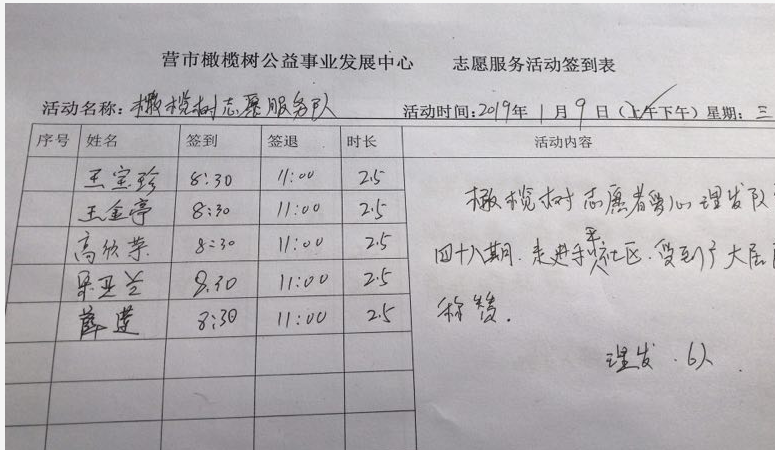 营市橄榄树公益事业发展中心 志愿服务活动签到表
活动名称：橄榄树志愿服务队 活动时间：2019年1月9日（上午下午）星期：三
序号 姓名 签到 签退 时长 活动内容
王宝珍 8:30 11:00 2.5
王金亭 8:30 11:00 2.5
高欣荣 8:30 11:00 2.5
宋亚兰 8:30 11:00 2.5
薛莲 8:30 11:00 2.5
橄榄树志愿者爱心理发队
四十八期.走进 社区.受到了大居
称赞.
理发.6人